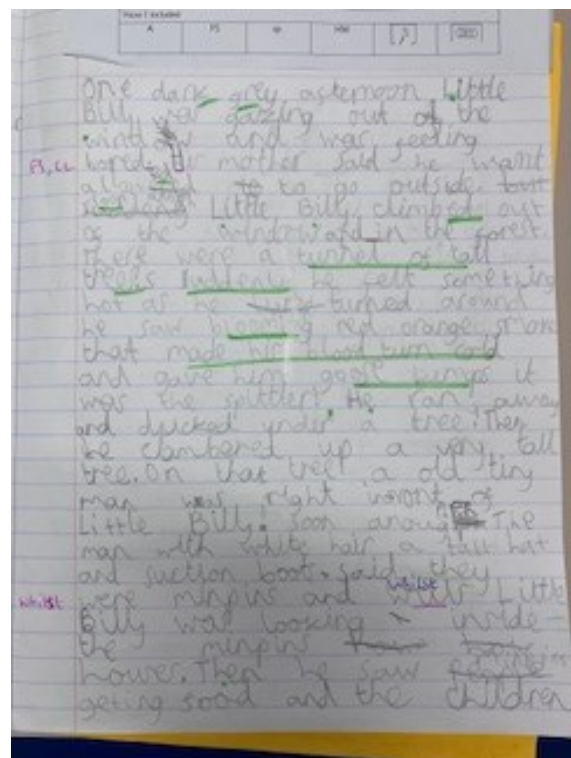 A FS sp HW
One dark grey afternoon Little
Billy was gazzing out of the
window and was feeling
FS, CL bored. his mother said he want
allowed to to go outside. but
Little Billy climbed out
of the window and in the forest.
There were a tunnel of tall
trees suddenly he felt something
hot as he turned around
he saw blooming red orange smoke
that made his blood turn cold
and gave him goose bumps it
was the spittler! He ran away
and ducked under a tree! Then
he clambered up a very tall
tree. On that tree a old tiny
man was right infront of
Little Billy! Soon anough The
man with white hair a tall hat
and suction boots said they
whilst
whilst were minpins and Little
Billy was looking inside
the minpins
houses. Then he saw
geting food and the children